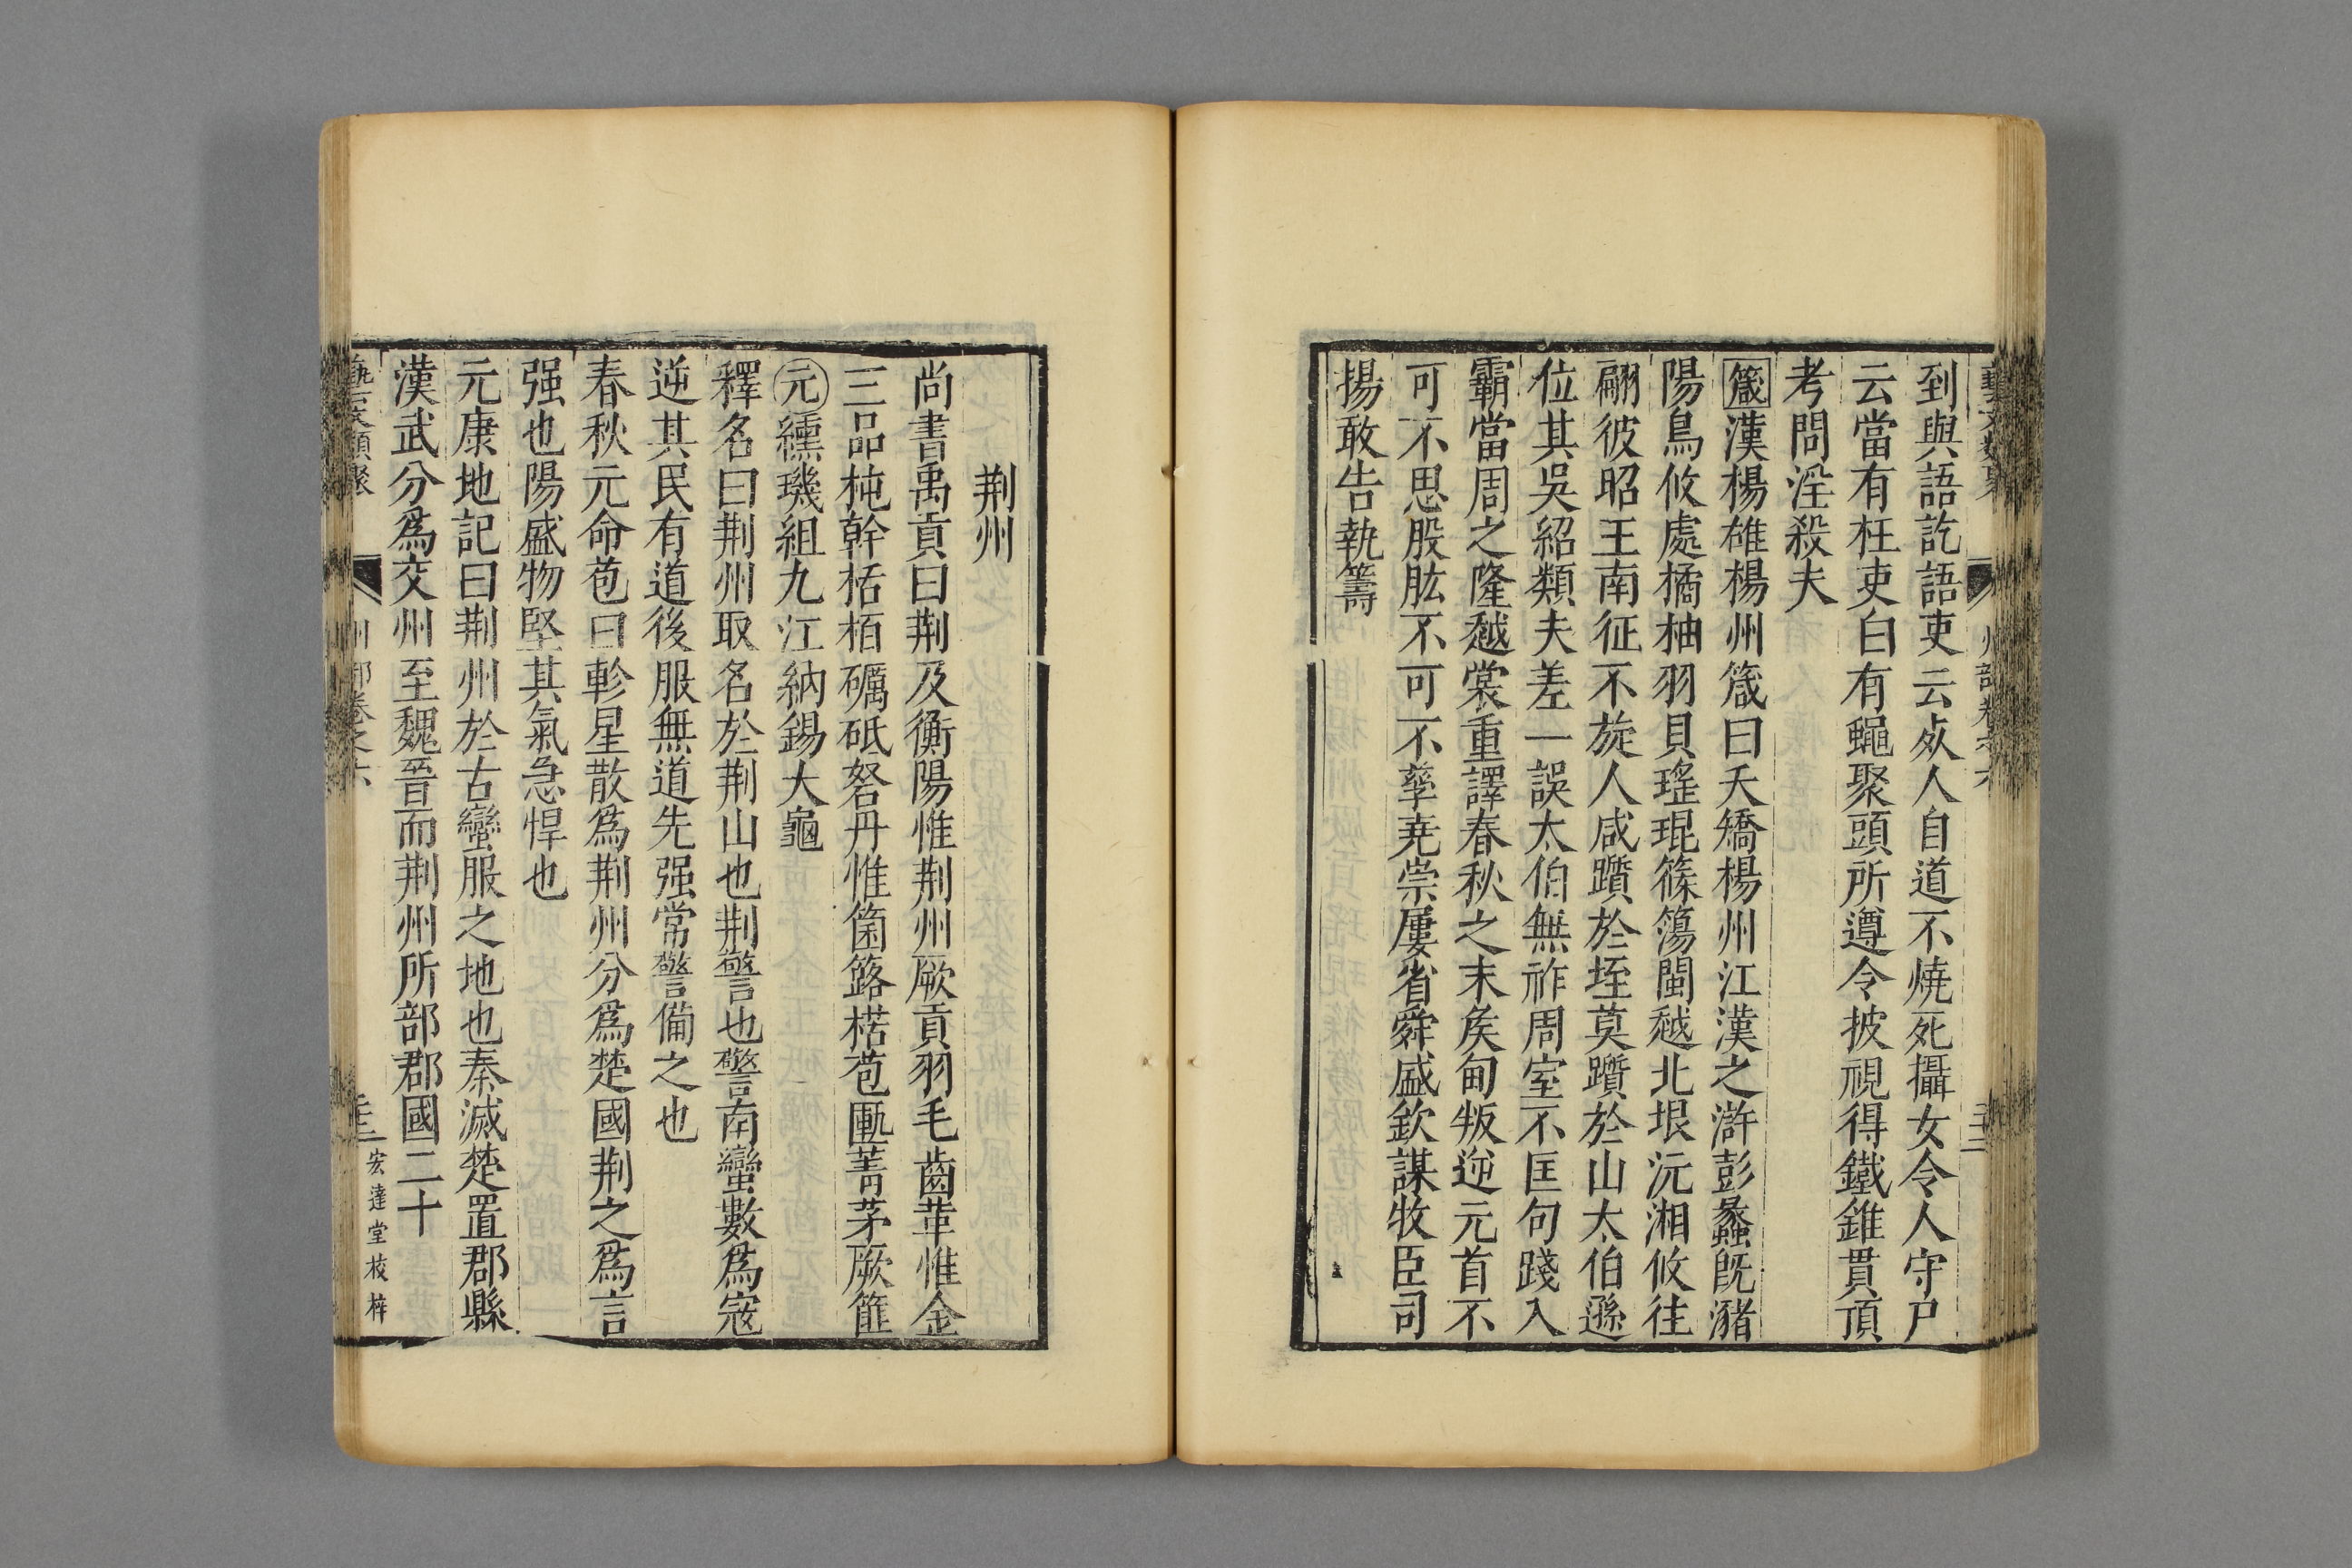 到與語訖語吏云处人自道不燒死攝女令人守尸
云當有枉吏白有蠅聚頭所遵令披視得鐵錐貫頂
考問淫殺夫
箴漢楊雄楊州箴曰夭矯楊州江漢之滸彭蠡旣瀦
陽鳥攸處橘柚羽貝瑤琨篠簜閩越北垠沅湘攸往
翩彼昭王南征不旋人咸躓於垤莫躓於山太伯遜
位其吳紹類夫差一誤太伯無祚周室不匡句踐入
霸當周之隆越裳重譯春秋之末矦甸叛逆元首不
可不思股肱不可不孳堯崇屢省舜盛欽謀牧臣司
揚敢告執籌
荆州
尚書禹貢曰荆及衡陽惟荆州厥貢羽毛齒革惟金
三品杶幹栝栢礪砥砮丹惟箘簬楛苞匭菁茅厥篚
元纁璣組九江納錫大龜
釋名曰荆州取名於荆山也荆警也警南蠻數爲宼
逆其民有道後服無道先强常警備之也
春秋元命苞曰軫星散爲荆州分爲楚國荆之爲言
强也陽盛物堅其氣急悍也
元康地記曰荆州於古蠻服之地也秦滅楚置郡縣
漢武分爲交州至魏晉而荆州所部郡國二十
宏達堂校梓